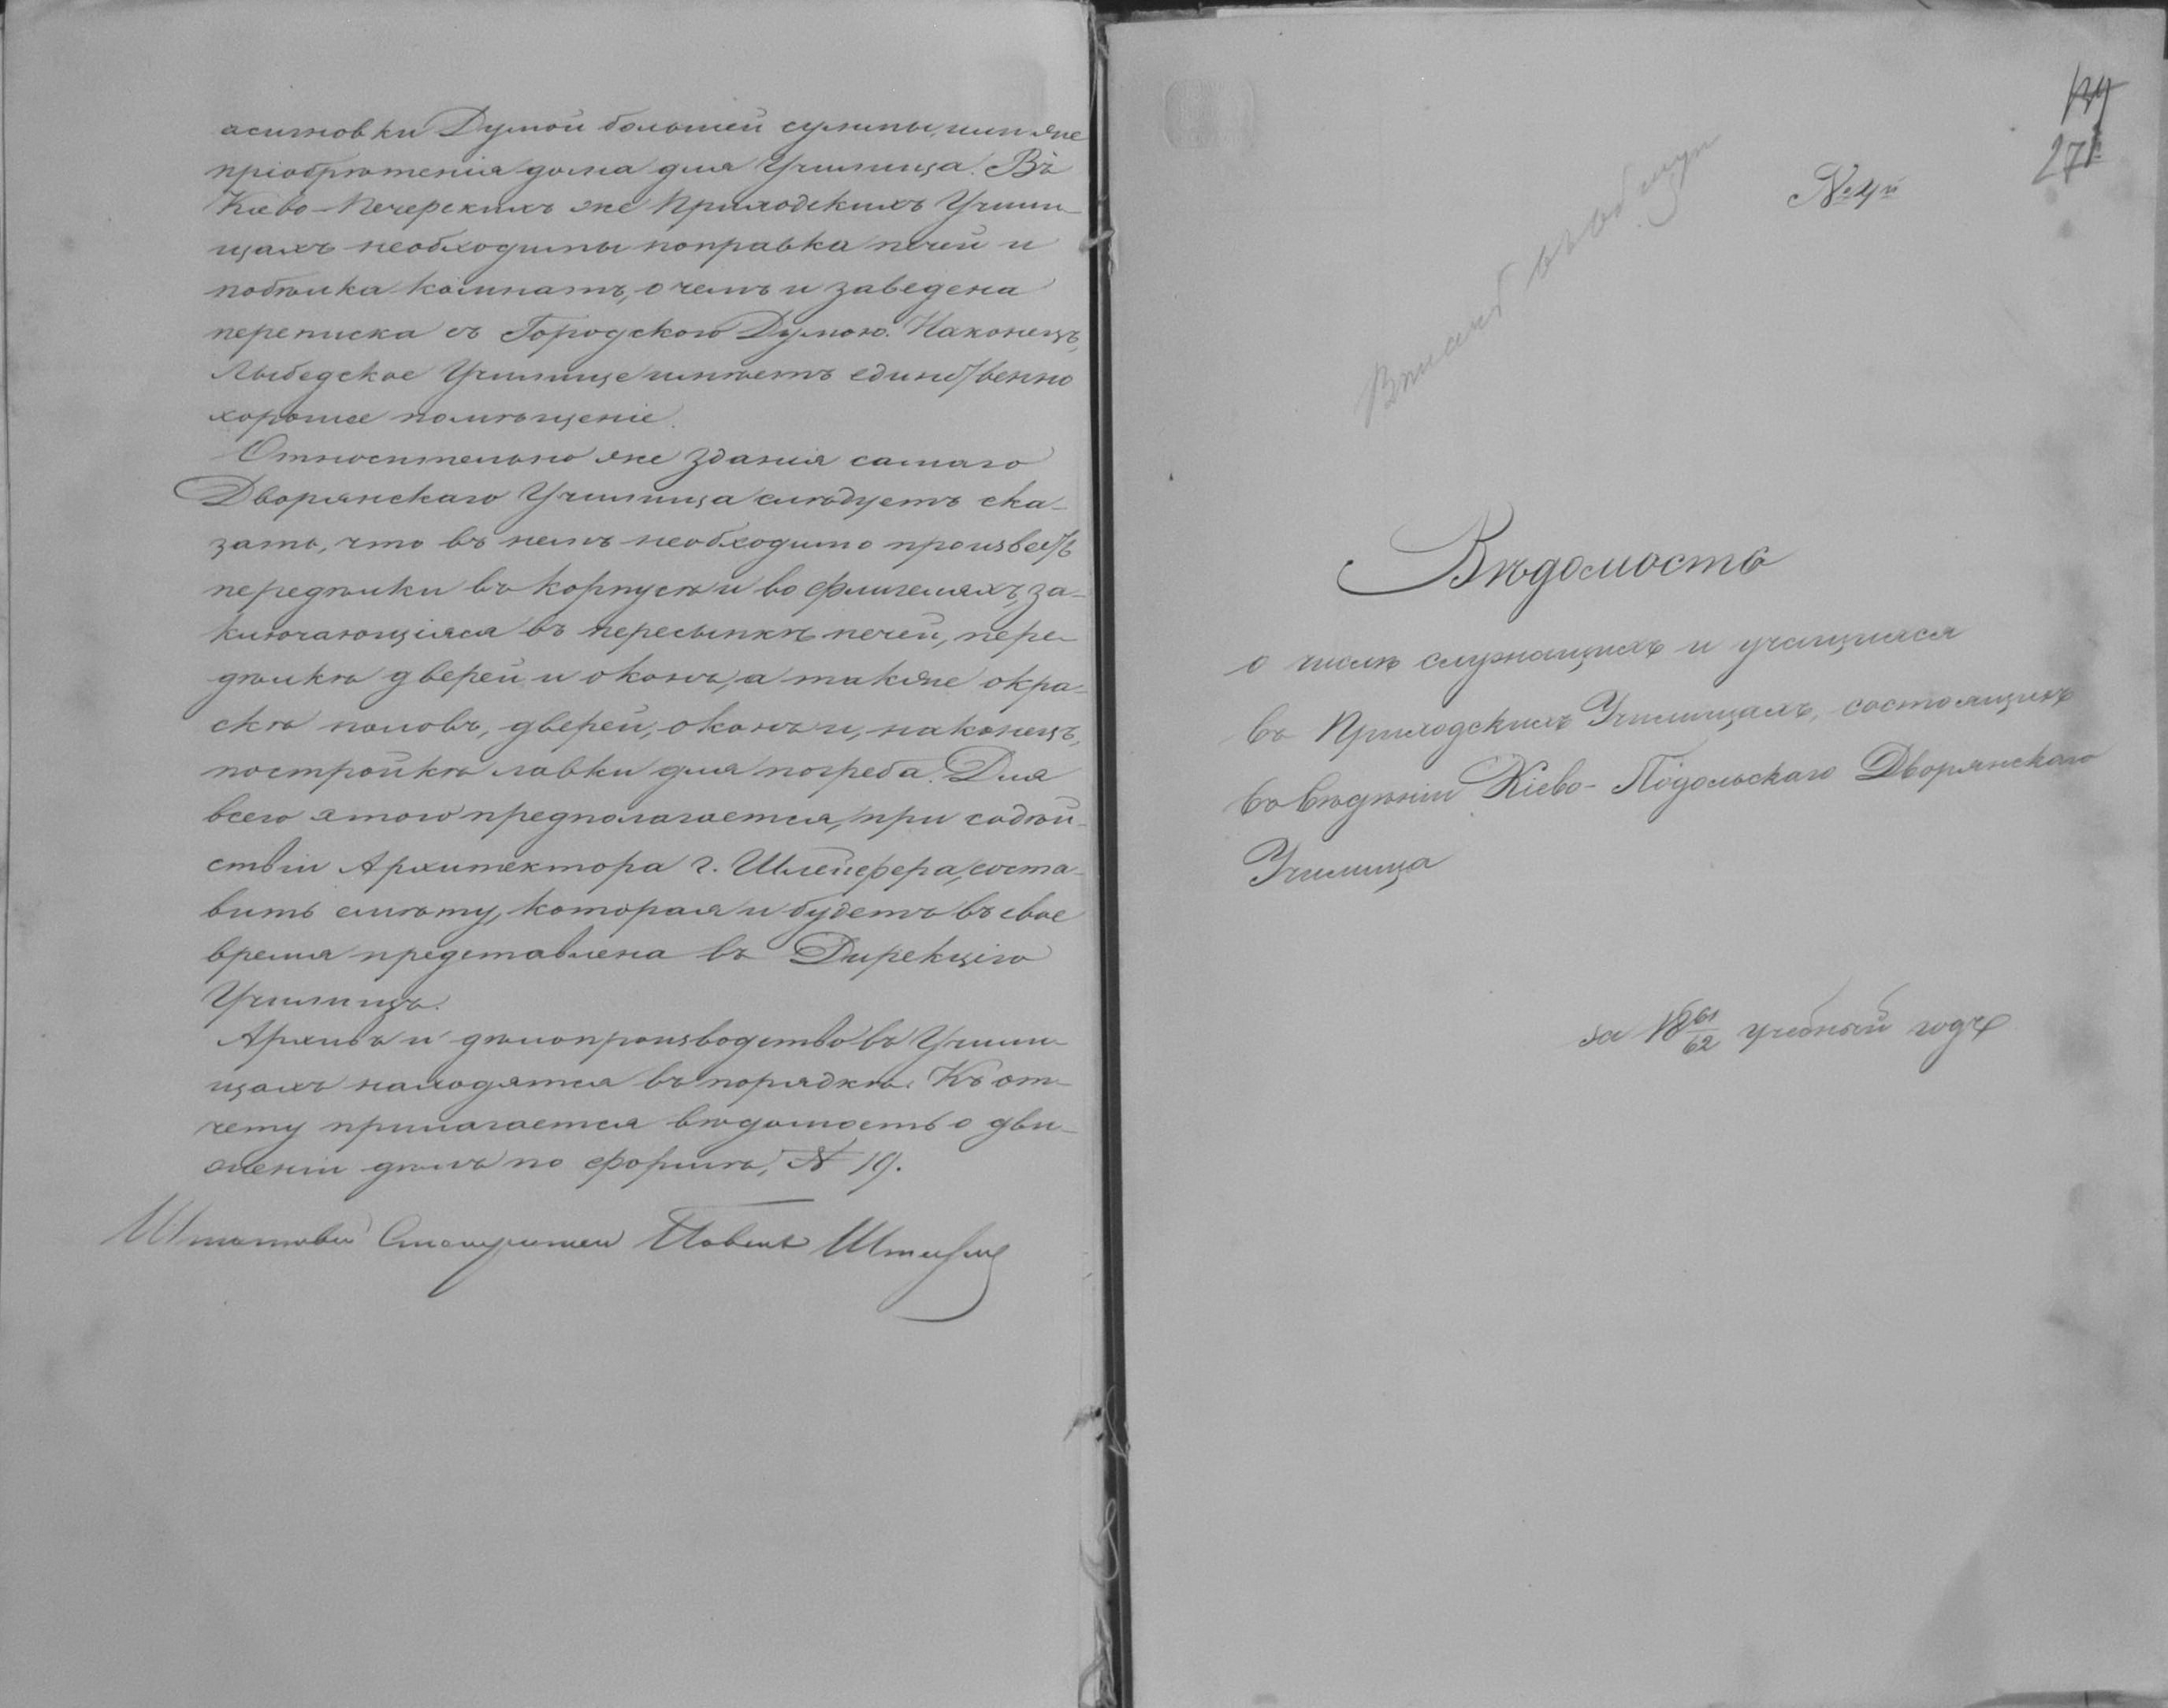 асигновки Думой большей суммы, или же
пріобрѣтенія дома для Училища. Въ
Кіево-Печерскихъ же Приходскихъ Учили-
щахъ необходимы поправка печей и
побѣлка комнатъ, о чемъ и заведена
переписка съ Городскою Думою. Наконецъ,
Лыбедское Училище имѣетъ единственно
хорошее помѣщеніе.
Относительно же зданія самаго
Дворянскаго Училища слѣдуетъ ска-
зать, что въ немъ необходимо произвесть
передѣлки въ корпусѣ и во флигеляхъ, за-
ключающіяся въ пересыпкѣ печей, пере-
дѣлкѣ дверей и оконъ, а также окра-
скѣ половъ, дверей, оконъ и, наконецъ,
постройкѣ лавки для погреба. Для
всего этого предполагается, при содѣй-
ствіи Архитектора г. Шлейфера, соста-
вить смѣту, которая и будетъ въ свое
время представлена въ Дирекцію
Училищъ.
Архивъ и дѣлопроизводство въ Учили-
щахъ находятся въ порядкѣ. Къ от-
чету прилагается вѣдомость о дви-
женіи дѣлъ по формѣ, № 19.
Штатный Смотритель Павелъ
139
271
№ 4й
Вѣдомость
о числѣ служащихъ и учащихся
въ Приходскихъ Училищахъ, состоящихъ
въ вѣдѣніи Кіево-Подольскаго Дворянскаго
Училища
за 18 61/62 учебный годъ